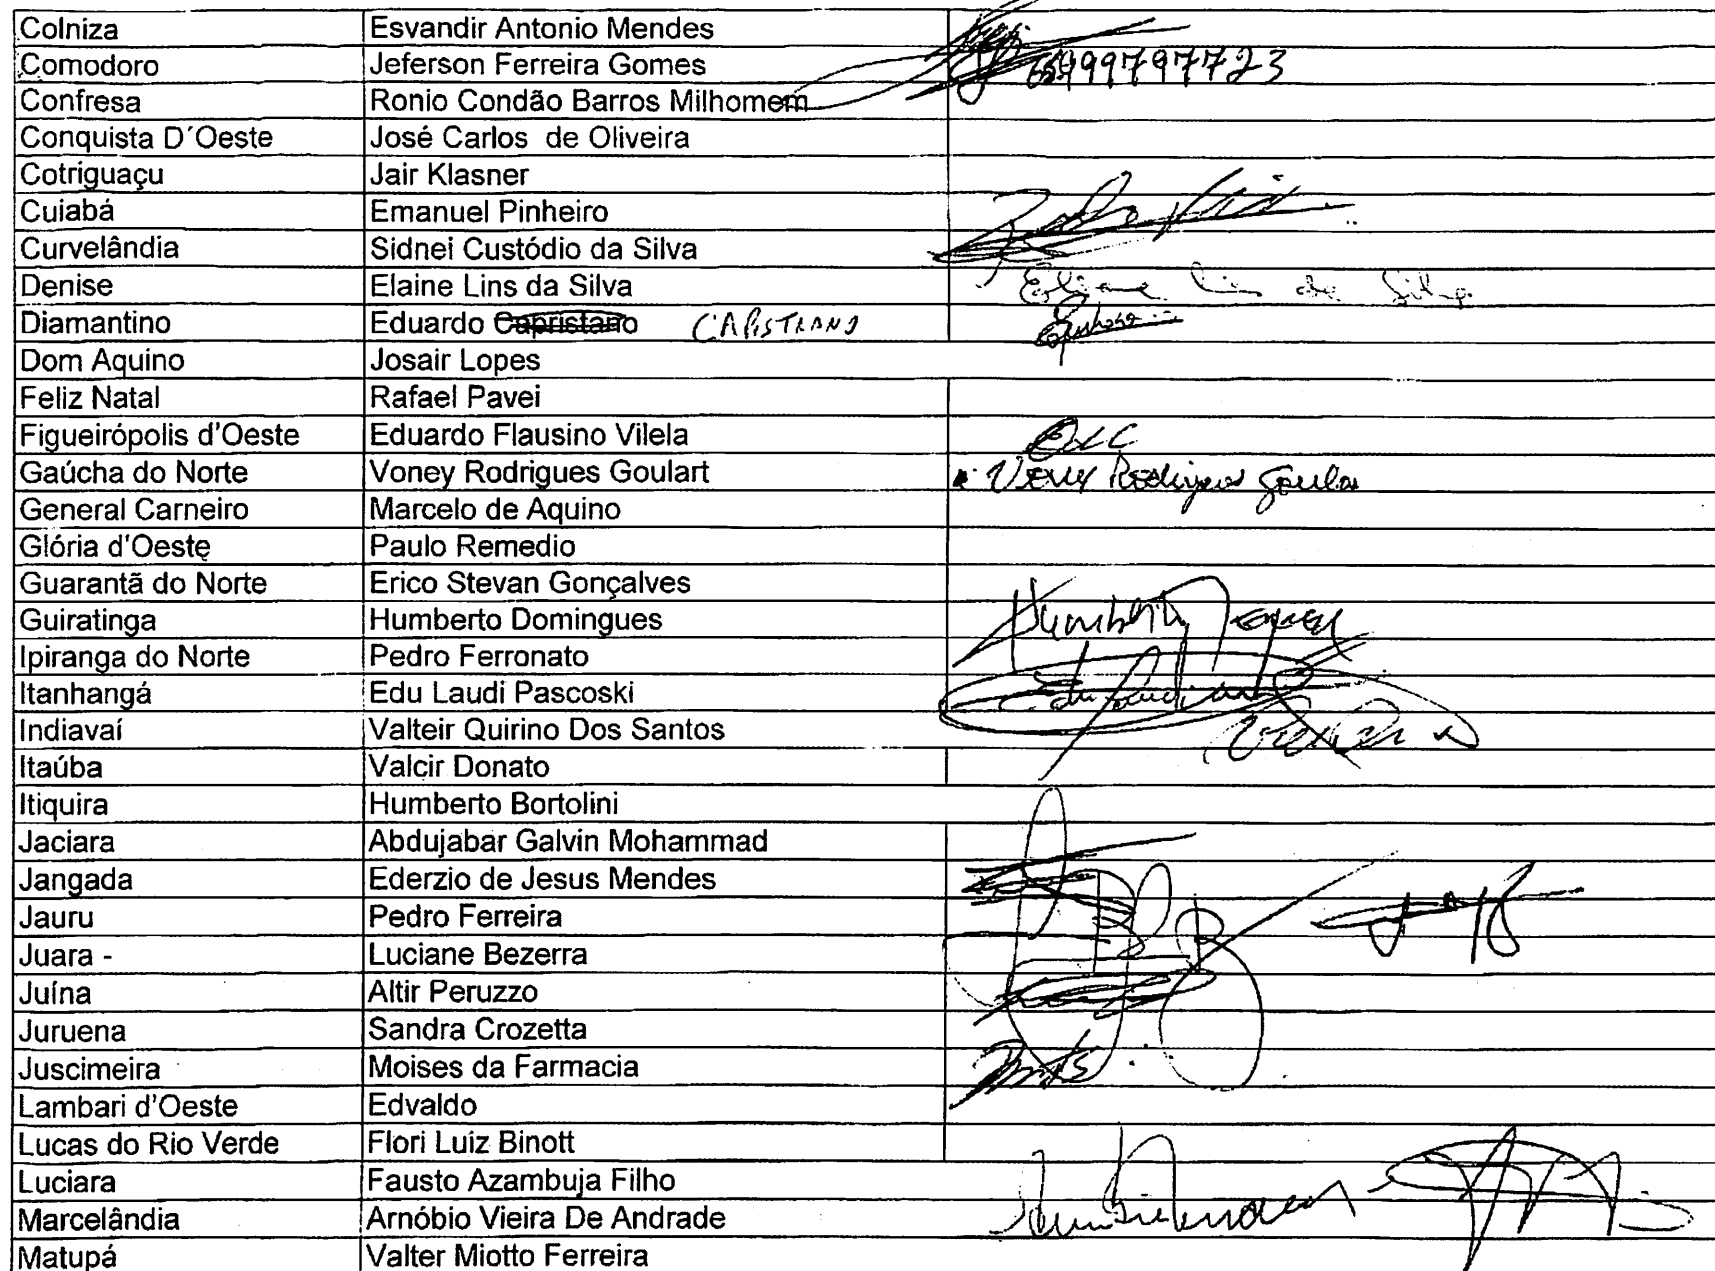 Colniza Esvandir Antonio Mendes
Comodoro Jeferson Ferreira Gomes
Confresa Ronio Condão Barros Milhomem
Conquista D´Oeste José Carlos de Oliveira
Cotriguaçu Jair Klasner
Cuiabá Emanuel Pinheiro
Curvelândia Sidnei Custódio da Silva
Denise Elaine Lins da Silva Eliane Lins da Silva
Diamantino Eduardo Capristano CAPISTRANO
Dom Aquino Josair Lopes
Feliz Natal Rafael Pavei
Figueirópolis d'Oeste Eduardo Flausino Vilela
Gaúcha do Norte Voney Rodrigues Goulart Voney Rodrigues Goulart
General Carneiro Marcelo de Aquino
Glória d'Oeste Paulo Remedio
Guarantã do Norte Erico Stevan Gonçalves
Guiratinga Humberto Domingues Humberto
Ipiranga do Norte Pedro Ferronato
Itanhangá Edu Laudi Pascoski
Indiavaí Valteir Quirino Dos Santos
Itaúba Valcir Donato
Itiquira Humberto Bortolini
Jaciara Abdujabar Galvin Mohammad
Jangada Ederzio de Jesus Mendes
Jauru Pedro Ferreira
Juara - Luciane Bezerra
Juína Altir Peruzzo
Juruena Sandra Crozetta
Juscimeira Moises da Farmacia
Lambari d'Oeste Edvaldo
Lucas do Rio Verde Flori Luiz Binott
Luciara Fausto Azambuja Filho
Marcelândia Arnóbio Vieira De Andrade
Matupá Valter Miotto Ferreira